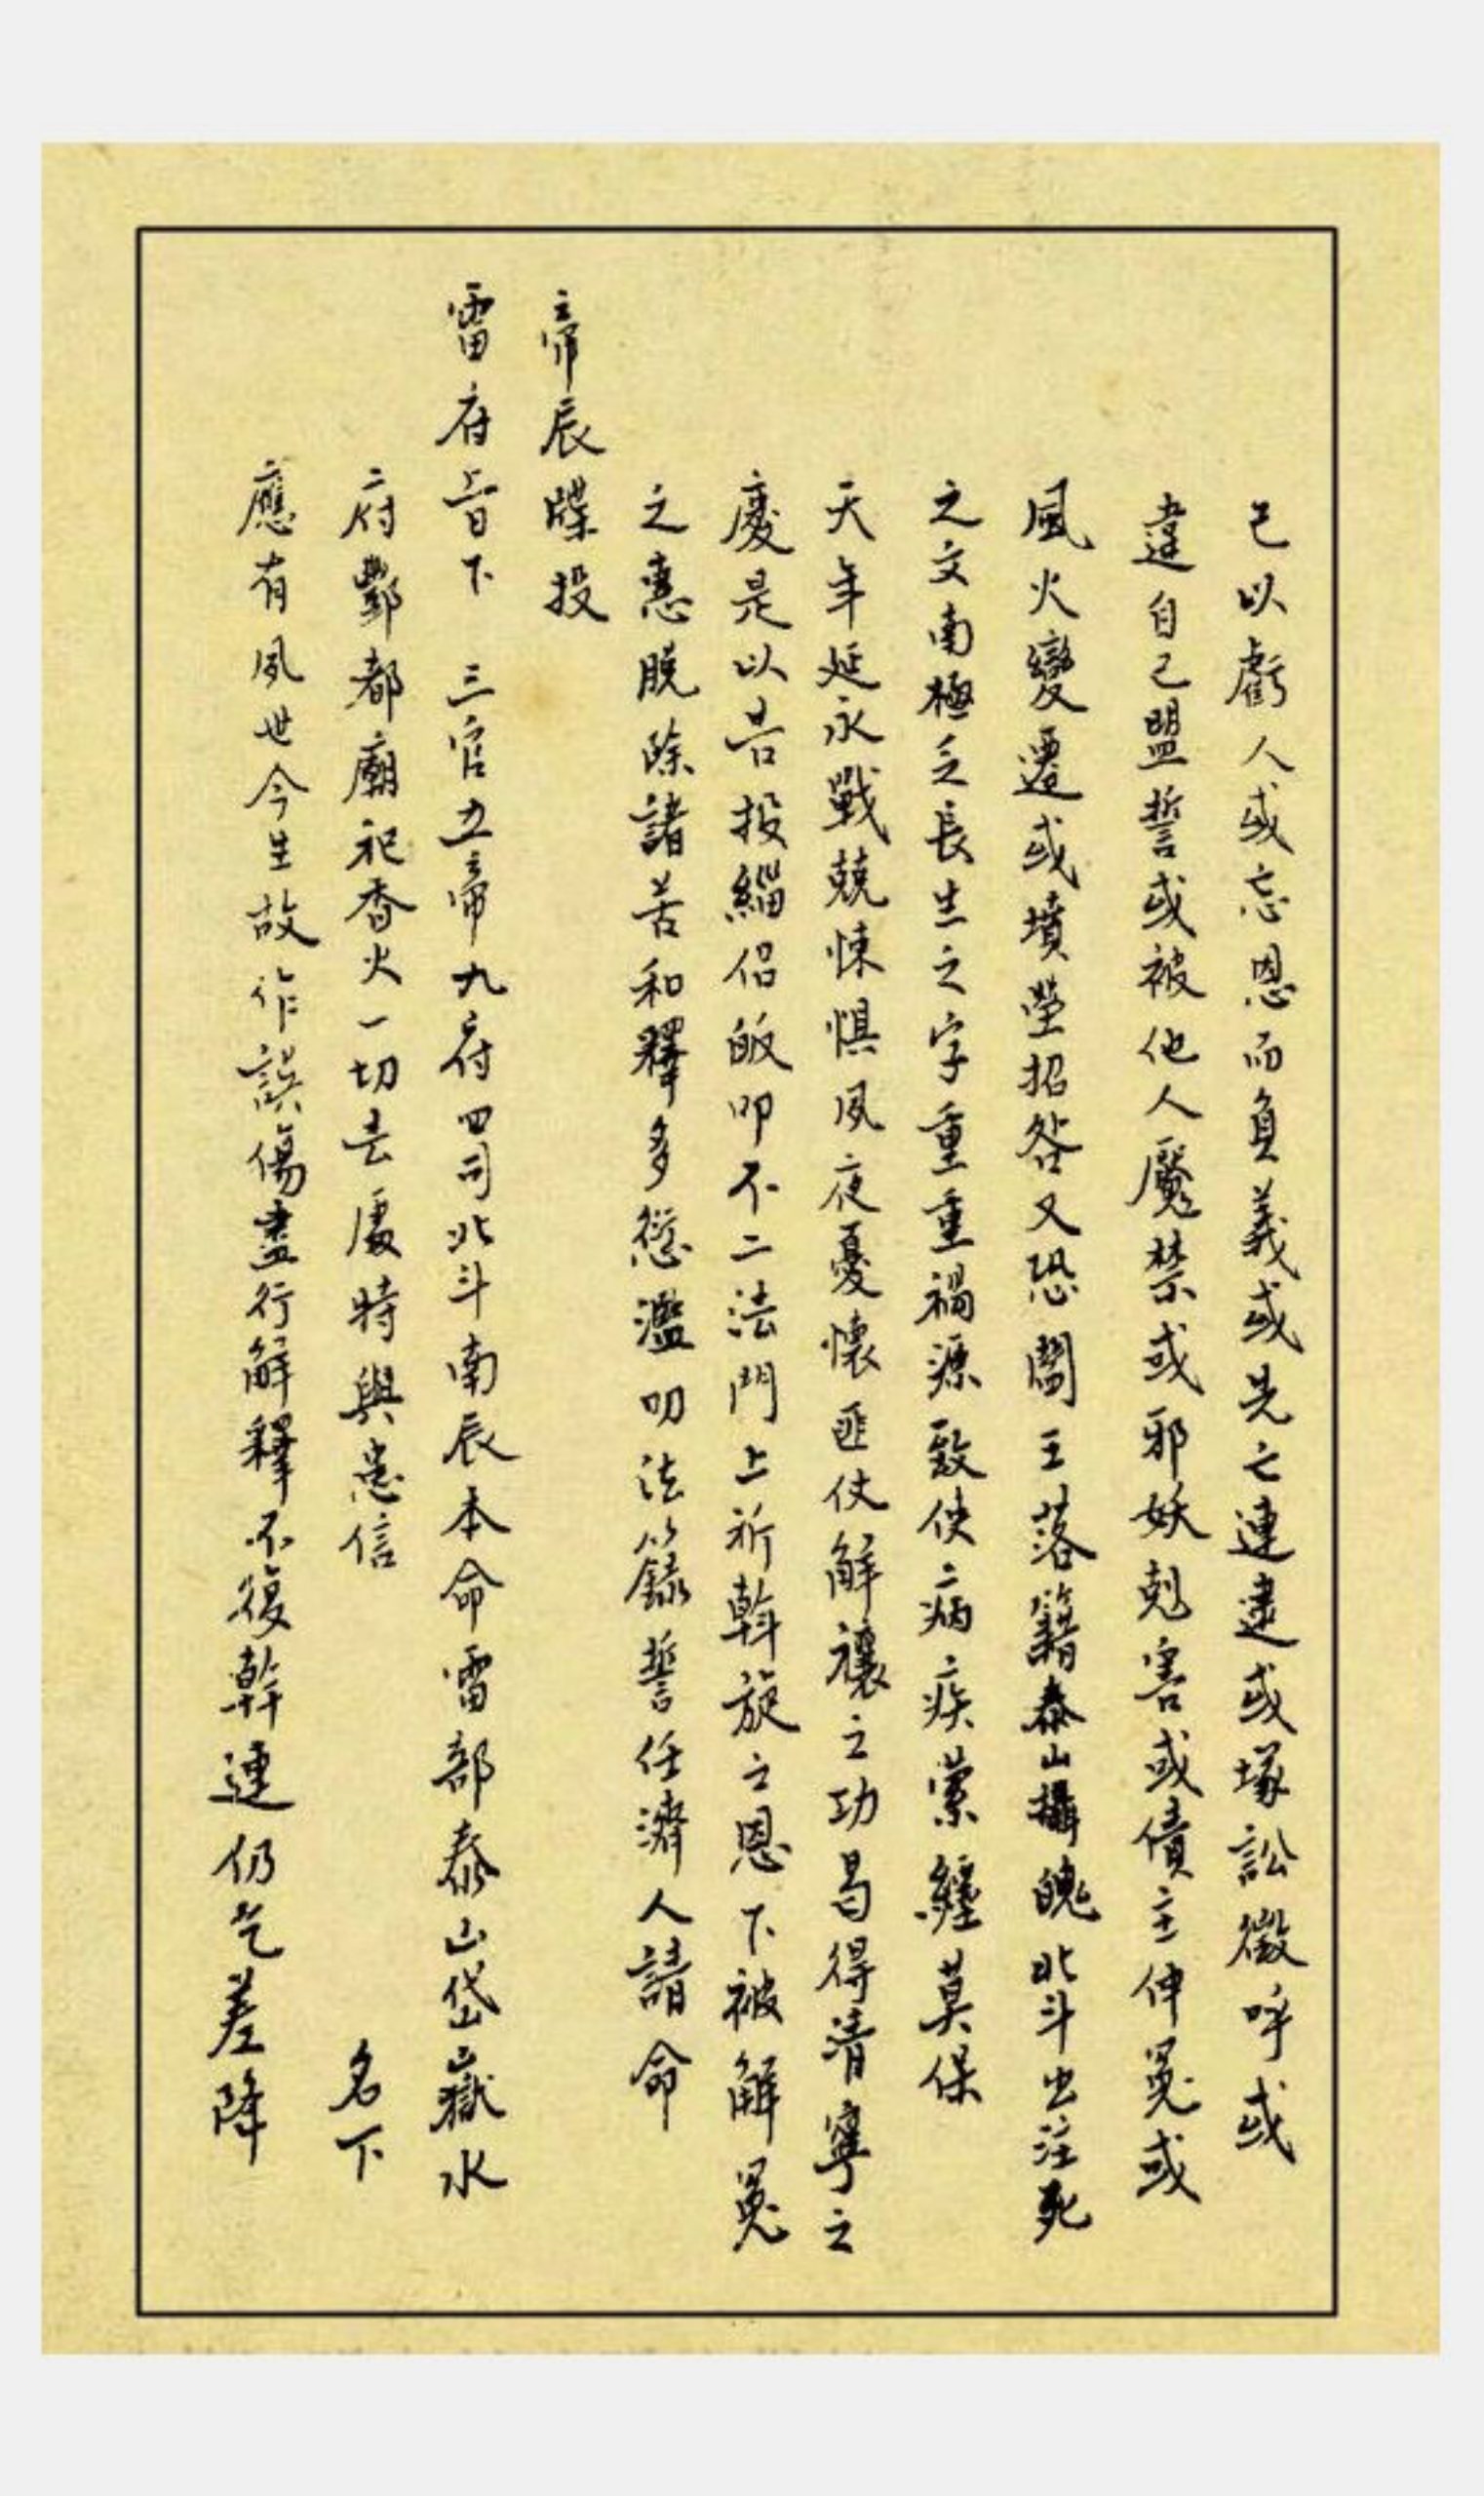 己以虧人或忘恩而負義或先亡連逮或塚訟徵呼或
違自己盟誓或被他人魘禁或邪妖尅害或債主伸冤或
風火變遷或墳塋招咎又恐閻王落籍泰山攝魄北斗出注死
之文南極乏長生之字重重禍源致使病疾縈纏莫保
天年延永戰兢悚惧夙夜憂懷匪仗解禳之功曷得清寧之
慶是以告投緇侣皈叩不二法門上祈斡旋之恩下被解冤
之惠脫除諸苦和釋多愆濫叨法籙誓任濟人請命
帝辰牒投
雷府旨下 三官五帝九府四司北斗南辰本命雷部泰山岱嶽水
府酆都廟祀香火一切去處特與患信 名下
應有夙世今生故作誤傷盡行解釋不復幹連仍乞差降